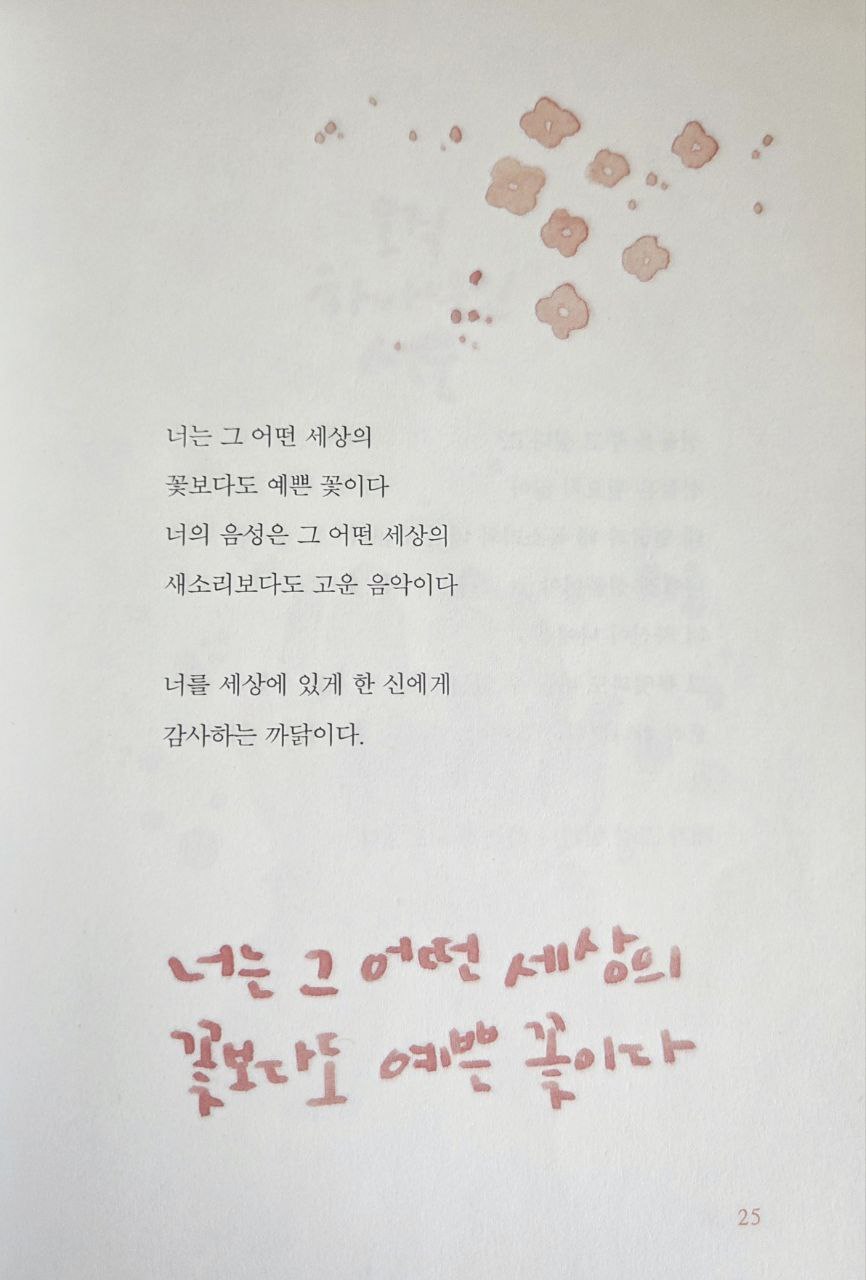 너는 그 어떤 세상의
꽃보다도 예쁜 꽃이다
너의 음성은 그 어떤 세상의
새소리보다도 고운 음악이다
너를 세상에 있게 한 신에게
감사하는 까닭이다.
너는 그 어떤 세상의
꽃보다도 예쁜 꽃이다
25